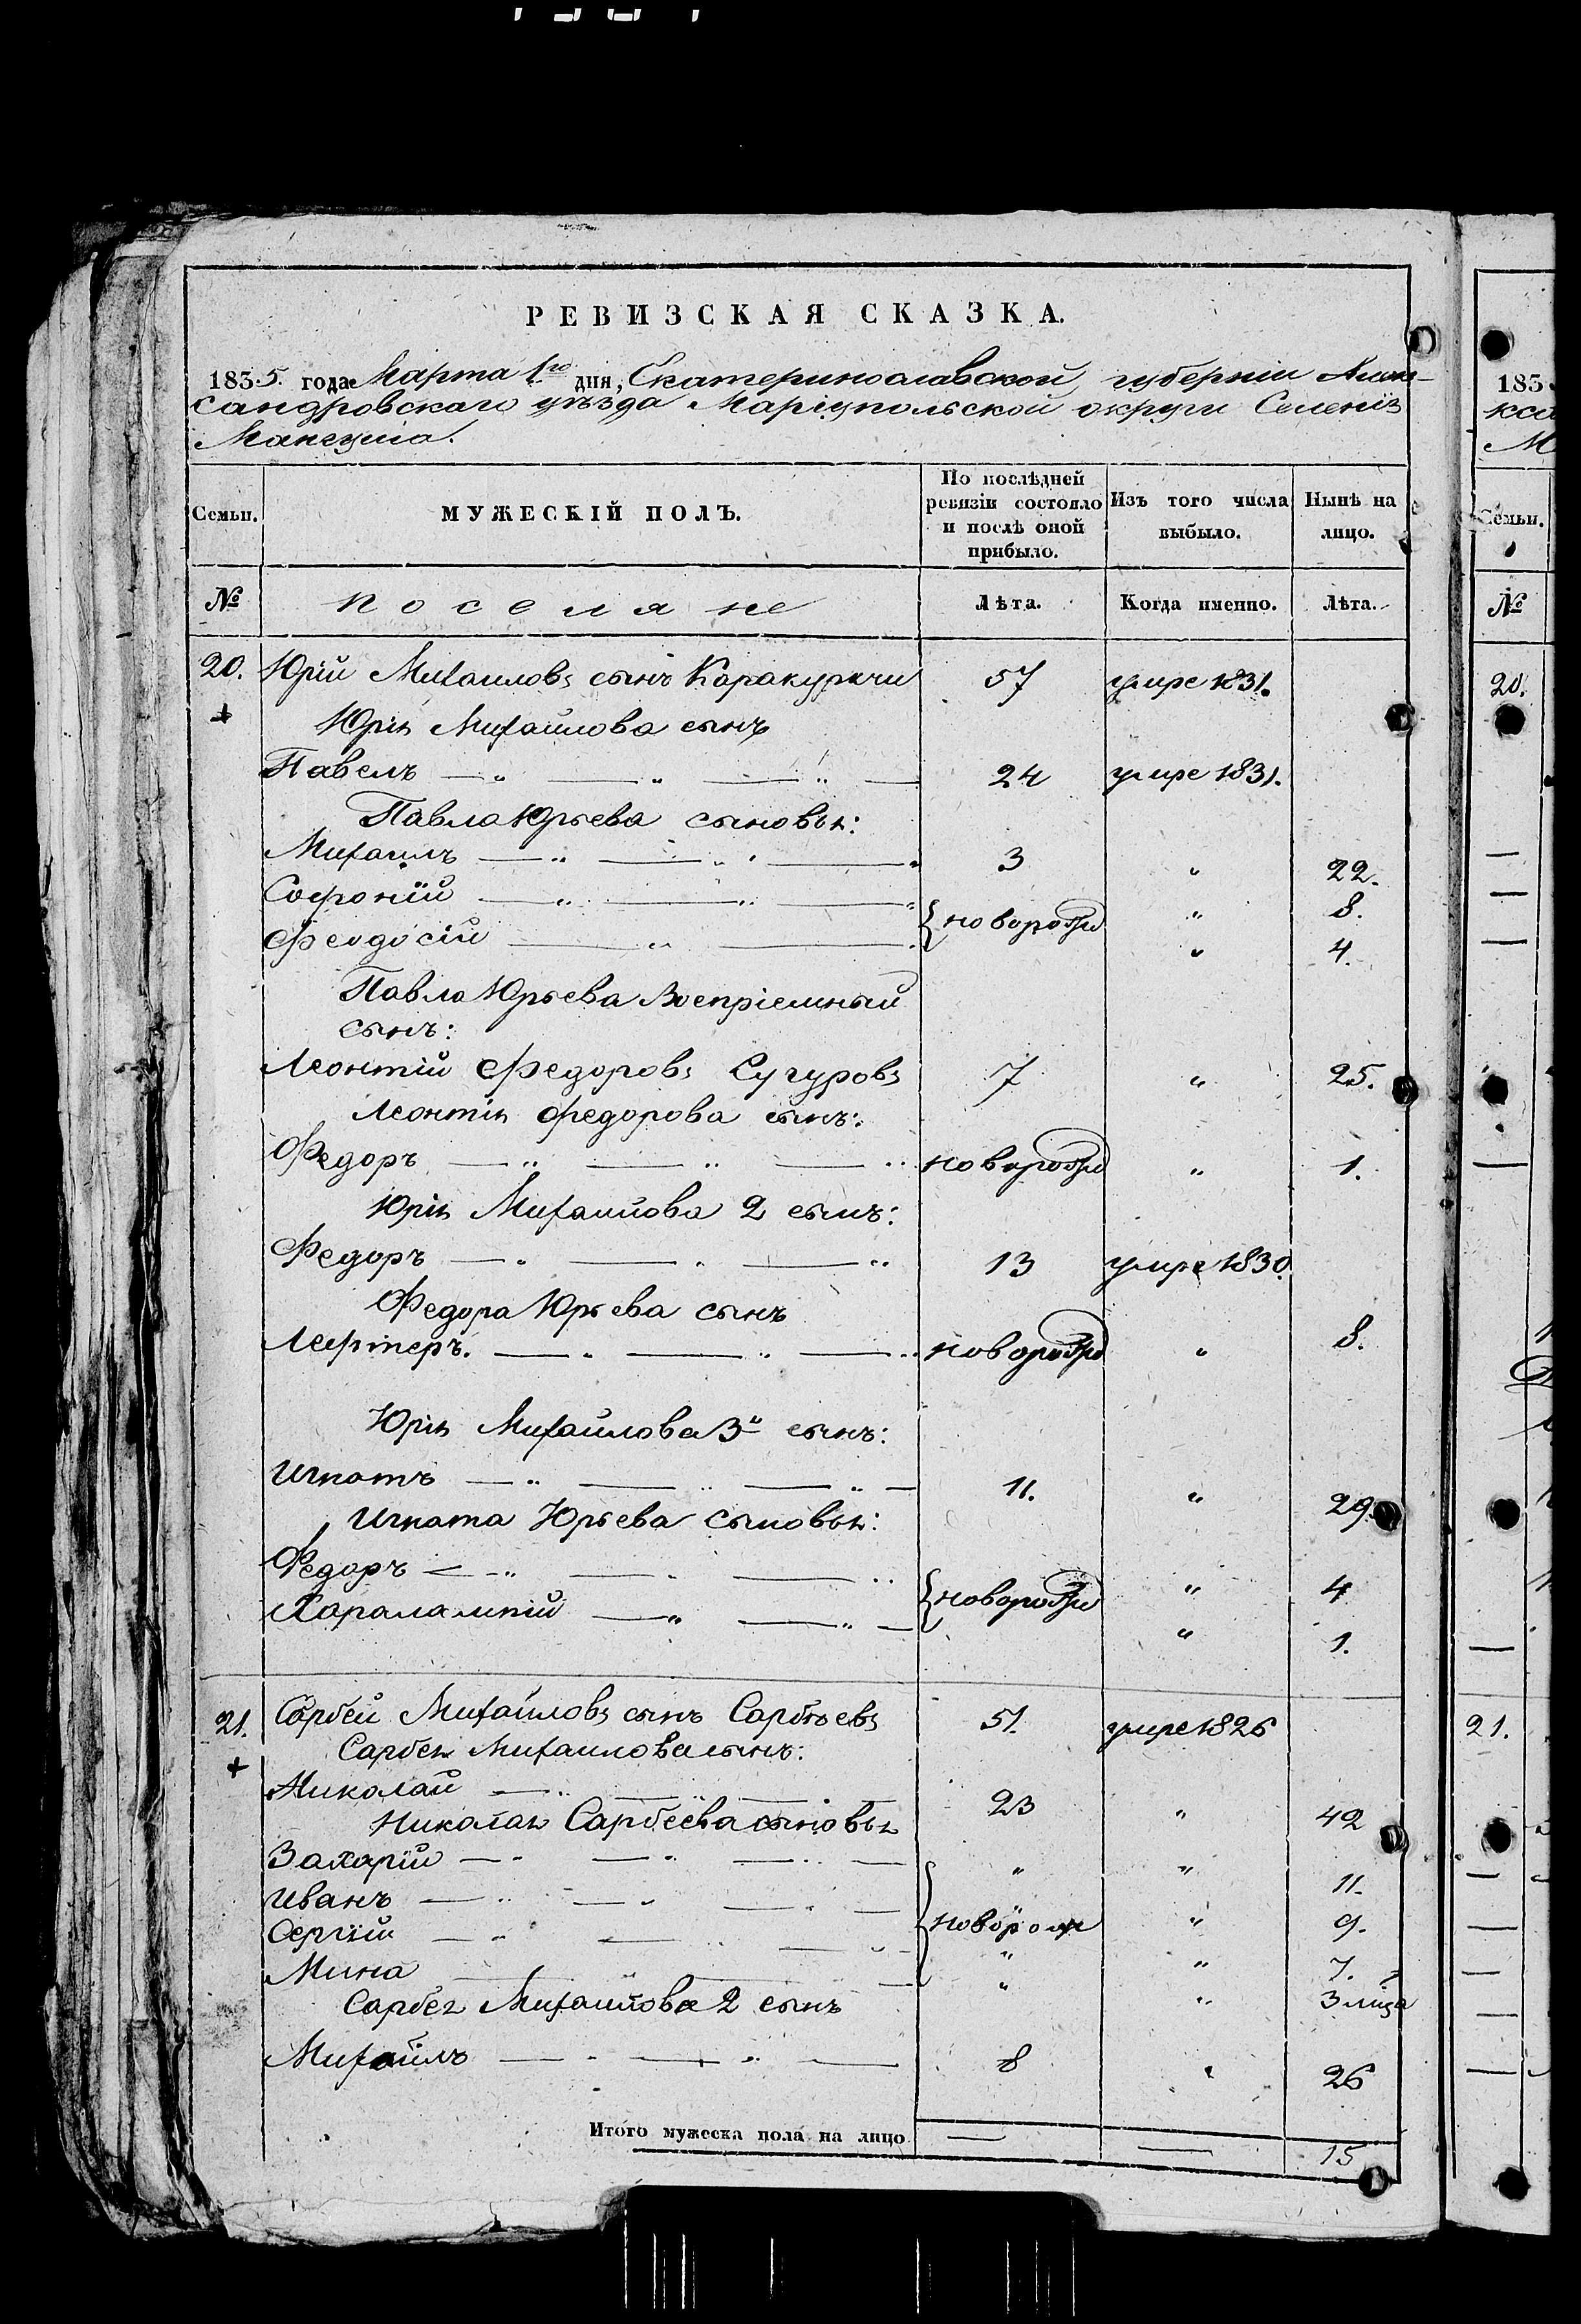 РЕВИЗСКАЯ СКАЗКА.
1835. года Марта 1го дня, Екатеринославской губерніи Алек-
сандровскаго уѣзда Маріупольской округи Селенія
Мангуша.
Семьи.
МУЖЕСКІЙ ПОЛЪ.
По послѣдней ревизіи состояло и послѣ оной прибыло.
Изъ того числа выбыло.
Нынѣ на лицо.
№ поселяне Лѣта. Когда именно. Лѣта.
20. Юрій Михаиловъ сынъ Каракуркчи 57 умре 1831.
Юрія Михаилова сынъ
Павелъ — „ — „ — „ — 24 умре 1831.
Павла Юрьева сыновья:
Михаилъ — „ — „ — „ 3 „ 22.
Софроній — „ — „ — „ { новорожд „ 8.
Феодосій — „ — „ „ 4.
Павла Юрьева Воспріемный
сынъ:
Леонтій Федоровъ Сугуровъ 7 „ 25.
Леонтія Федорова сынъ:
Федоръ — „ — „ — „ новорожд „ 1.
Юрія Михайлова 2 сынъ:
Федоръ — „ — „ — „ 13 умре 1830.
Федора Юрьева сынъ
Лефтеръ. — „ — „ — „ новорожд „ 8.
Юрія Михайлова 3й сынъ:
Игнатъ — „ — „ — „ — 11. „ 29.
Игната Юрьева сыновья:
Федоръ — „ — „ — „ { новорожд „ 4
Харалампій — „ — „ — „ 1.
21. Сарбей Михайловъ сынъ Сарбѣевъ 51. умре 1826
Сарбея Михаилова сынъ:
Николай — „ — „ — 23 „ 42
Николая Сарбеева сыновья
Захарій — „ — „ — „ — { „ „ 11.
Иванъ — „ — „ — „ — новорожд „ 9.
Сергій — „ — „ — „ — „ „ 7.
Мина — „ — „ „ 3 лица
Сарбея Михайлова 2 сынъ
Михаилъ — „ — „ — 8 „ 26
Итого мужеска пола на лицо — — 15
185
кса
М
Семьи.
№
20.
21.